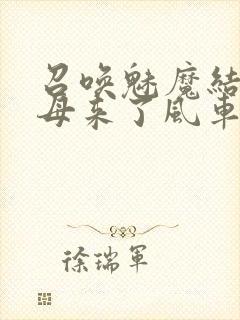 召唤魅魔结
母来了风车
徐瑞军